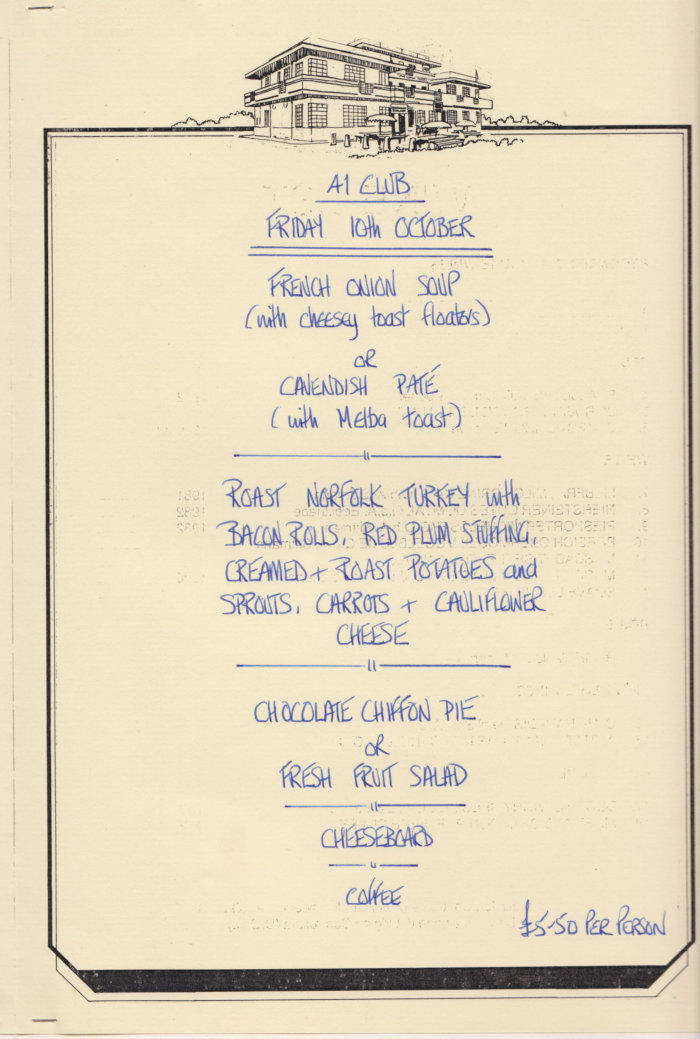 A1 CLUB
FRIDAY 10th OCTOBER
FRENCH ONION SOUP
(with cheesey toast floators)
OR
CAVENDISH PATÉ
(with Melba toast)
ROAST NORFOLK TURKEY with
BACON ROLLS, RED PLUM STUFFING,
CREAMED + ROAST POTATOES and
SPROUTS, CARROTS + CAULIFLOWER
CHEESE
CHOCOLATE CHIFFON PIE
OR
FRESH FRUIT SALAD
CHEESEBOARD
COFFEE
£5-50 PER PERSON